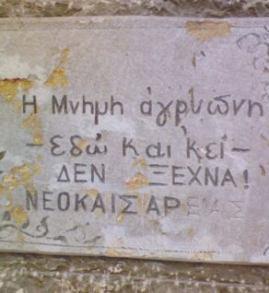 Η Μνήμη ἀγρυπνη
- Εδώ και κεί -
ΔΕΝ ΞΕΧΝΑ!
ΝΕΟΚΑΙΣΑΡΕΙΑΣ